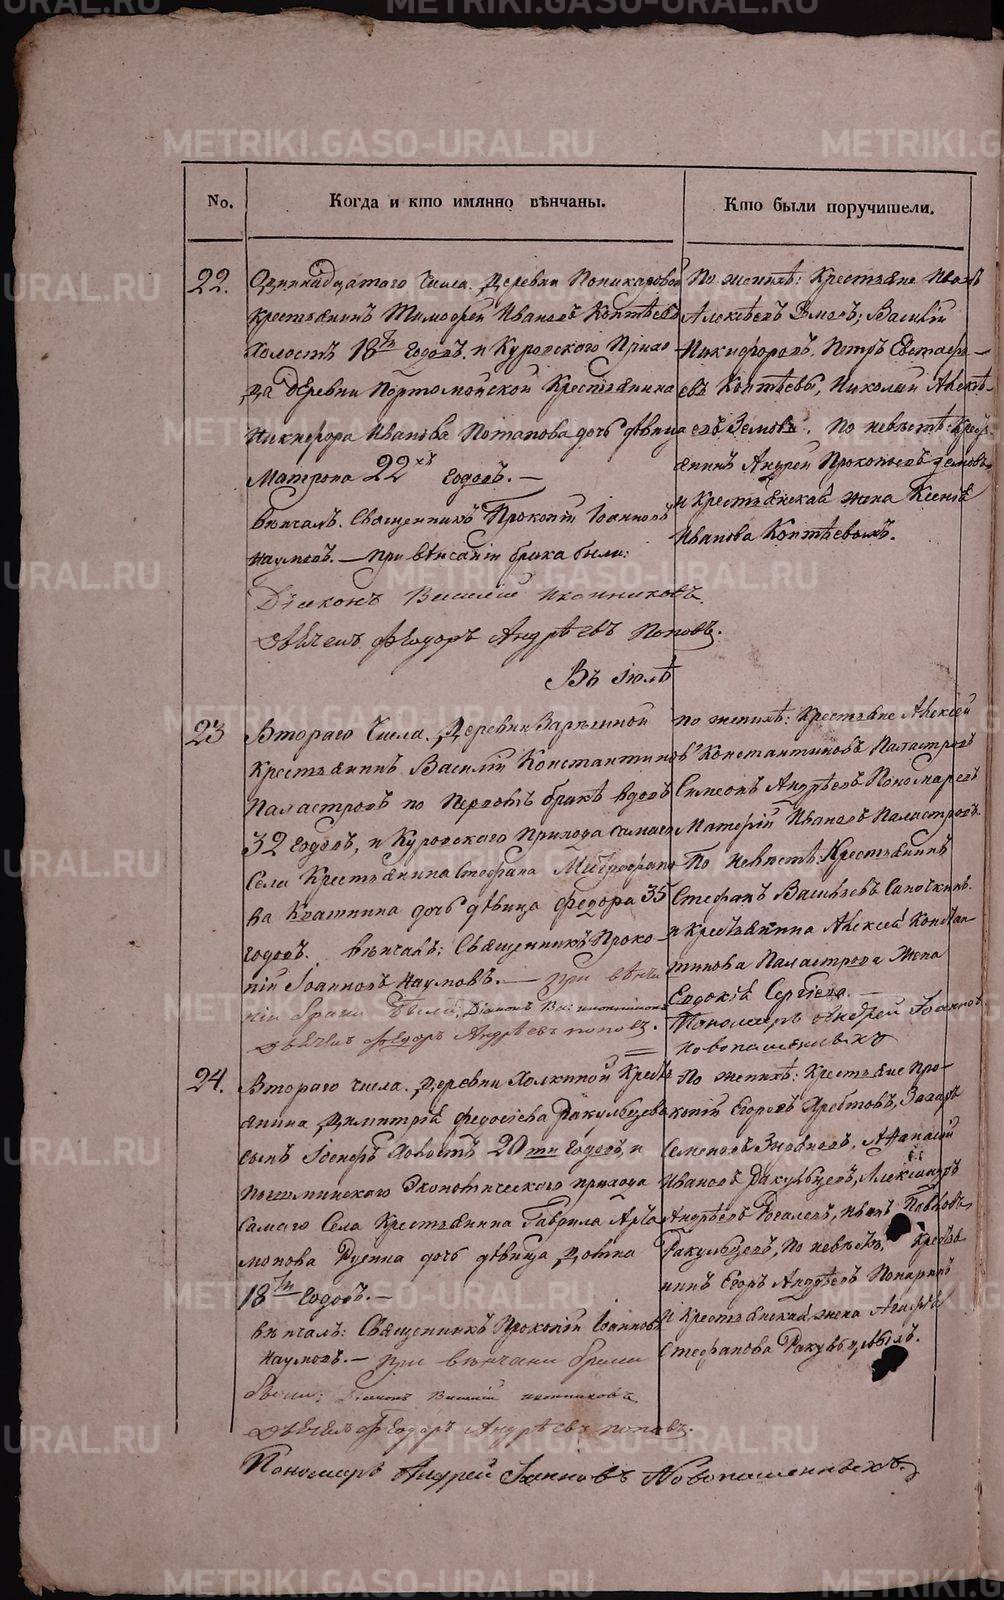 No.
Когда и кто имянно вѣнчаны.
Кто были поручители.
22.
Одиннадцатаго числа. Деревни Поникаровой
крестьянинъ Тимофей Ивановъ Коптѣевъ
холостъ 18ти годовъ, и Куровского Прихо
да деревни Портомойской Крестьянина
Никифора Иванова Потапова дочь дѣвица
Матрона 22хъ годовъ. —
Вѣнчалъ. Священникъ Прокопій Іоанновъ
Наумовъ. — при вѣнчаніи брака были:
Діяконъ Василій Иконниковъ
Дьячекъ Феодоръ Андрѣевъ Поповъ.
По женихѣ: Крестьяне Иванъ
Алексѣевъ Земовъ; Василій
Никифоровъ, Петръ Евстафь—
евъ Коптѣевы, Николай Алексѣ
евъ Земовъ. По невѣстѣ: Крестья
янинъ Андрей Прокопьевъ Земовъ
и Крестьянская жена Ксенія
Иванова Коптѣевыхъ.
Въ Іюлѣ
23
Втораго числа. Деревни
Крестьянинъ Василій Константиновъ
Паластровъ по первомъ бракѣ вдовъ
32 годовъ, и Куровского Прихода самаго
Села Крестьянина Стефана Митрофано
ва Квашнина дочь дѣвица Федора 35
годовъ. вѣнчалъ: Священникъ Проко—
пій Іоанновъ Наумовъ. — при вѣнча
ніи брака были, Діаконъ Ва: иконниковъ
Дьячекъ Феодоръ Андрѣевъ поповъ.
по женихѣ: Крестьяне Алексѣй
Константиновъ Паластровъ
Симеонъ Андрѣевъ Пономаревъ
Матфѣй Ивановъ Паластровъ.
По невѣстѣ: Крестьянинъ
Стефанъ Васильевъ Сапочкинъ.
и Крестьянина Алексѣй Констан—
тинова Паластрова Жена
Евдокія Сергѣева. —
Пономарь Андрей Іоанновъ
Новопашенныхъ
24.
Втораго числа. Деревни Холкиной Кресть
янина Димитрія Федосіева Ракульцева
сынъ холостъ 20ти годовъ, и
Пышминского Экономическаго прихода
самаго Села Крестьянина Гаврила Арта
монова дочь дѣвица
18ти годовъ. —
вѣнчалъ: Священникъ Прокопій Іоанновъ
Наумовъ. — при вѣнчани брака
были: Діаконъ Василій иконниковъ
Дьячекъ Феодоръ Андрѣевъ поповъ.
Пономарь Андрей Іанновъ Новопашенныхъ.
По женихѣ: Крестьяне Про—
копій Егоровъ Хребтовъ, Захаръ
Семеновъ Афанасій
Ивановъ Ракульцевъ, Александръ
Андрѣевъ Рогалевъ, Иванъ Павловъ
Ракульцевъ, По невѣстѣ, Кресть
нинъ Егоръ Андрѣевъ
И Крестьянская жена
Стефанова Ракульцовыхъ.